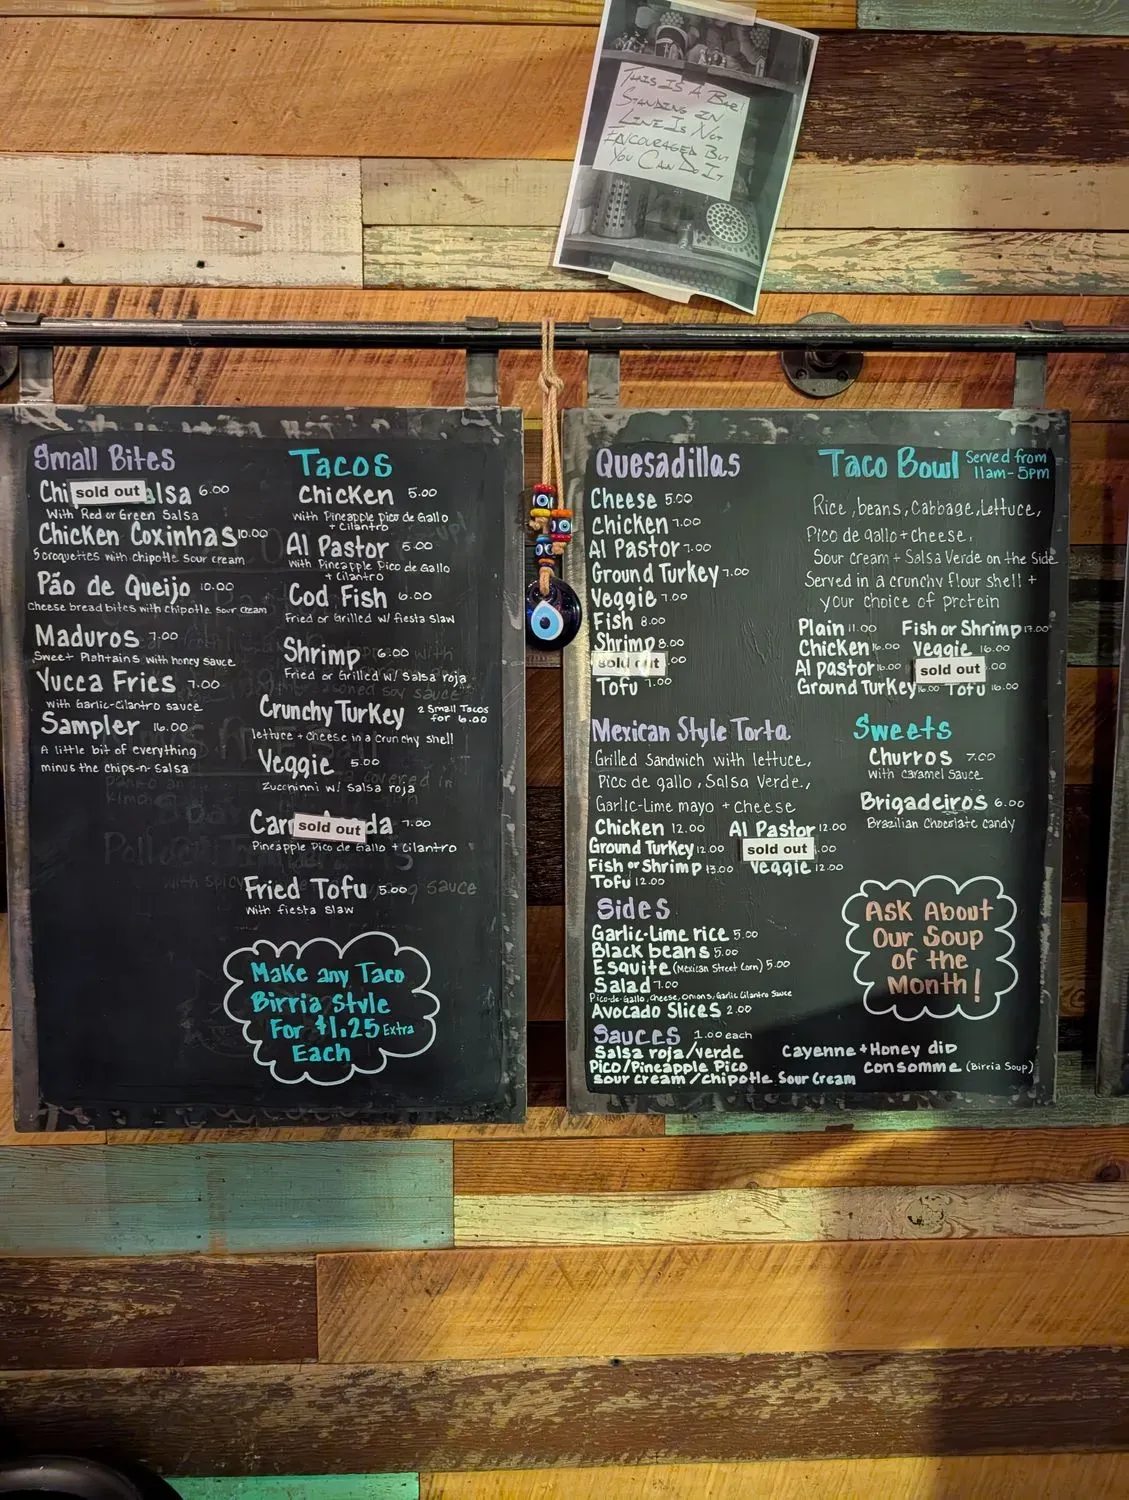 THIS IS A BAR!
STANDING IN
LINE IS NOT
ENCOURAGED BUT
YOU CAN DO IT
Small Bites
Chi sold out alsa 6.00
With Red or Green Salsa
Chicken Coxinhas 10.00
5 croquettes with chipotle sour cream
Pão de Queijo 10.00
Cheese bread bites with Chipotle Sour Cream
Maduros 7.00
Sweet Plantains with honey sauce
Yucca Fries 7.00
with Garlic-Cilantro sauce
Sampler 16.00
A little bit of everything
minus the chips-n-Salsa
Tacos
Chicken 5.00
with Pineapple Pico de Gallo
+ Cilantro
Al Pastor 5.00
with Pineapple Pico de Gallo
+ Cilantro
Cod Fish 6.00
Fried or Grilled w/ fiesta slaw
Shrimp 6.00
Fried or Grilled w/ Salsa roja
Crunchy Turkey 2 Small Tacos for 6.00
lettuce + cheese in a crunchy shell
Veggie 5.00
Zucchinni w/ Salsa roja
Car sold out da 7.00
Pineapple Pico de Gallo + Cilantro
Fried Tofu 5.00
with fiesta slaw
Make any Taco
Birria Style
For $1.25 Extra
Each
Quesadillas
Cheese 5.00
Chicken 7.00
Al Pastor 7.00
Ground Turkey 7.00
Veggie 7.00
Fish 8.00
Shrimp 8.00
sold out .00
Tofu 7.00
Taco Bowl Served from 11am-5pm
Rice, beans, Cabbage, Lettuce,
Pico de gallo + cheese,
Sour cream + Salsa Verde on the Side
Served in a crunchy flour shell +
your choice of protein
Plain 11.00 Fish or Shrimp 17.00
Chicken 16.00 Veggie 16.00
Al Pastor 16.00 sold out .00
Ground Turkey 16.00 Tofu 16.00
Mexican Style Torta
Grilled Sandwich with lettuce,
Pico de gallo, Salsa Verde,
Garlic-Lime mayo + cheese
Chicken 12.00 Al Pastor 12.00
Ground Turkey 12.00 sold out .00
Fish or Shrimp 13.00 Veggie 12.00
Tofu 12.00
Sweets
Churros 7.00
with Caramel Sauce
Brigadeiros 6.00
Brazilian Chocolate Candy
Sides
Garlic-Lime rice 5.00
Black beans 5.00
Esquite (Mexican Street Corn) 5.00
Salad 7.00
Pico-de-Gallo, Cheese, Onions, Garlic Cilantro Sauce
Avocado Slices 2.00
Ask About
Our Soup
of the
Month!
Sauces 1.00 each
Salsa roja/verde
Pico/Pineapple Pico
sour cream/chipotle Sour Cream
Cayenne + Honey dip
consomme (Birria Soup)